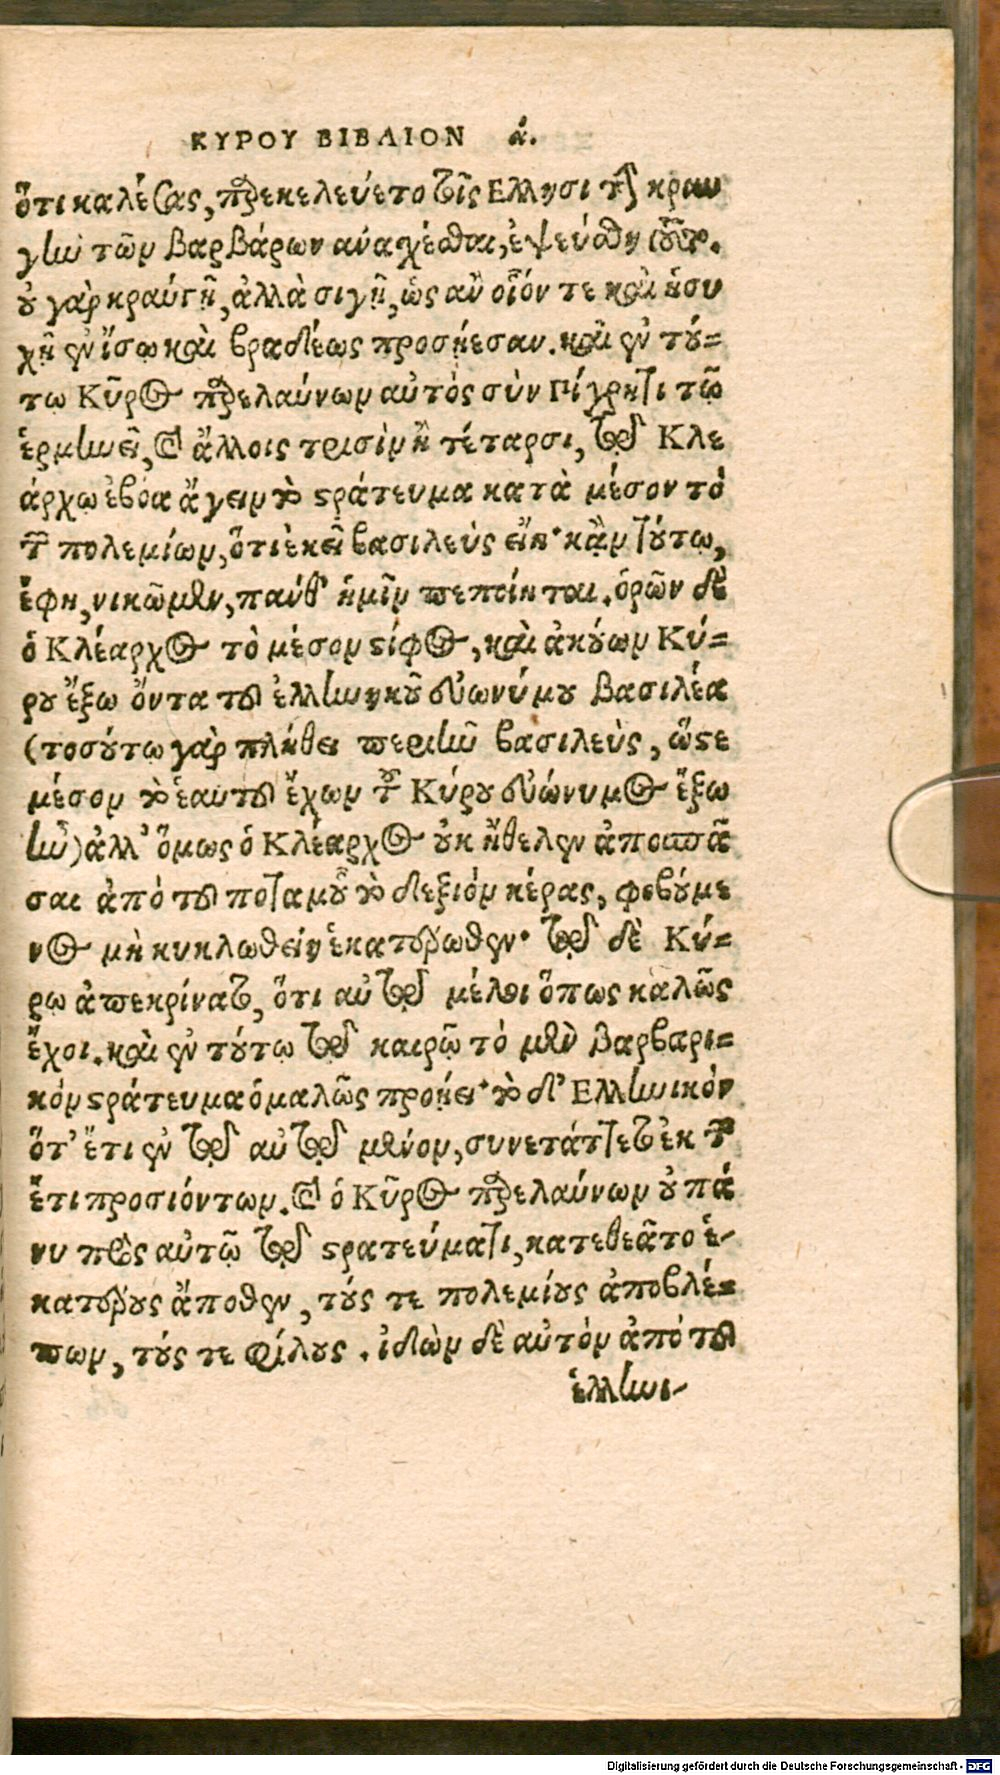 ΚΥΡΟΥ ΒΙΒΛΙΟΝ ά.
ὅτι καλέσας, παρεκελεύετο τοῖς Ἕλλησι τὴν κραυ
γὴν τῶν βαρβάρων ἀνασχέσθαι, ἐψεύσθη τοῦτο.
οὐ γὰρ κραύγῇ, ἀλλὰ σιγῇ, ὡς ἂν οἷόν τε καὶ ἡσυ
χῇ ἐν ἴσῳ καὶ βραδέως προσῄεσαν. καὶ ἐν τού=
τῳ Κῦρος παρελαύνων αὐτὸς σὺν Πίγρητι τῷ
ἑρμηνεῖ, καὶ ἄλλοις τρισὶν ἢ τέταρσι, τῷ Κλε
άρχῳ ἐβόα ἄγειν τὸ στράτευμα κατὰ μέσον τὸ
τῶν πολεμίων, ὅτι ἐκεῖ βασιλεὺς εἴη· κἂν τούτῳ,
ἔφη, νικῶμεν, πάνθ' ἡμῖν πεποίηται. ὁρῶν δὲ
ὁ Κλέαρχος τὸ μέσον στίφος, καὶ ἀκούων Κύ=
ρου ἔξω ὄντα τοῦ ἑλληνικοῦ εὐωνύμου βασιλέα
(τοσούτῳ γὰρ πλήθει περιῆν βασιλεὺς, ὥστε
μέσον τὸ ἑαυτοῦ ἔχων τοῦ Κύρου εὐώνυμος ἔξω
ἦν) ἀλλ' ὅμως ὁ Κλέαρχος οὐκ ἤθελεν ἀποσπᾶ
σαι ἀπὸ τοῦ ποταμοῦ τὸ δεξιὸν κέρας, φοβούμε
νος μὴ κυκλωθείη ἑκατέρωθεν· τῷ δὲ Κύ=
ρῳ ἀπεκρίνατο, ὅτι αὐτῷ μέλει ὅπως καλῶς
ἔχοι. καὶ ἐν τούτῳ τῷ καιρῷ τὸ μὲν βαρβαρι=
κὸν στράτευμα ὁμαλῶς προῄει· τὸ δ' Ἑλληνικὸν
ὅτ' ἔτι ἐν τῷ αὐτῷ μένον, συνετάττετο ἐκ τῶν
ἔτι προσιόντων. καὶ ὁ Κῦρος παρελαύνων οὐ πά
νυ πρὸς αὐτῷ τῷ στρατεύματι, κατεθεᾶτο ἑ-
κατέρους ἄποθεν, τούς τε πολεμίους ἀποβλέ=
πων, τούς τε φίλους. ἰδὼν δὲ αὐτὸν ἀπὸ τοῦ
ἑλληνι-
Digitalisierung gefördert durch die Deutsche Forschungsgemeinschaft - DFG